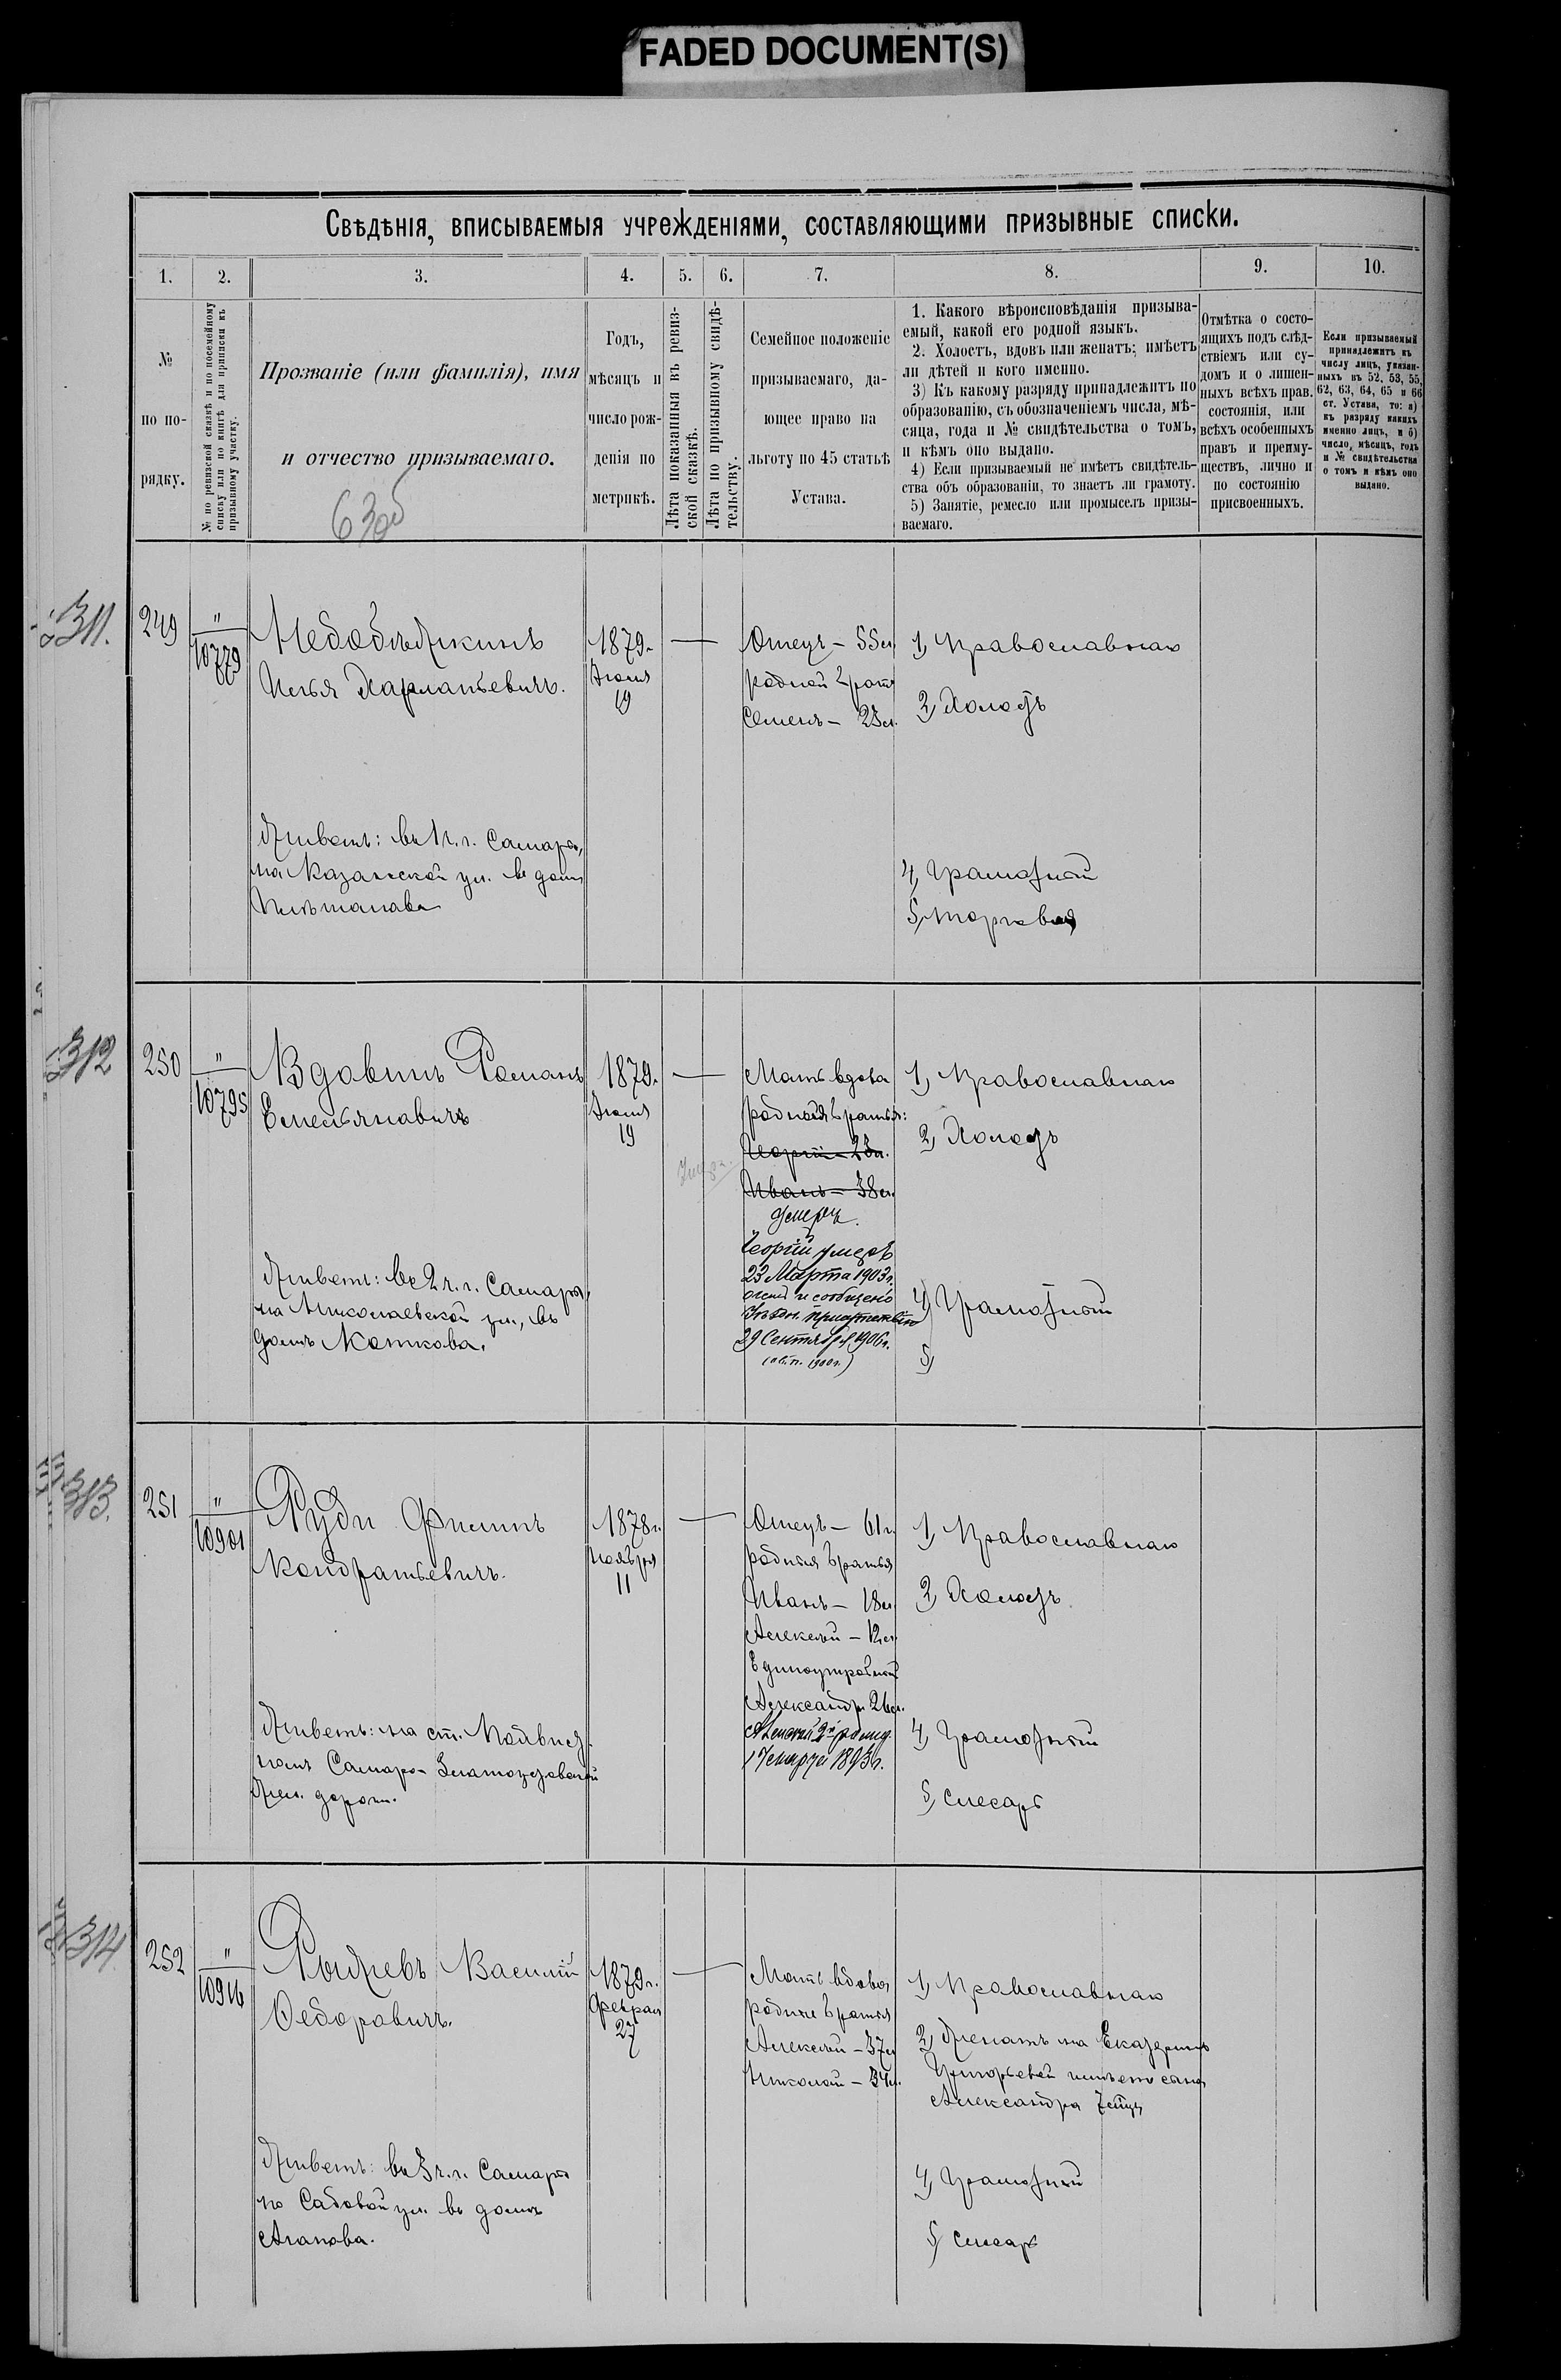 FADED DOCUMENT(S)
Свѣдѣнія, вписываемыя учрежденіями, составляющими призывные списки.
1. 2. 3. 4. 5. 6. 7. 8. 9. 10.
№ по порядку.
№ по ревизской сказкѣ и по посемейному списку или по книгѣ для приписки къ призывному участку.
Прозваніе (или фамилія), имя
и отчество призываемаго.
Годъ,
мѣсяцъ и
число рож-
денія по
метрикѣ.
Лѣта показанныя въ ревиз-
ской сказкѣ.
Лѣта по призывному свидѣ-
тельству.
Семейное положеніе
призываемаго, да-
ющее право на
льготу по 45 статьѣ
Устава.
1. Какого вѣроисповѣданія призыва-
емый, какой его родной языкъ.
2. Холостъ, вдовъ или женатъ; имѣетъ
ли дѣтей и кого именно.
3) Къ какому разряду принадлежитъ по
образованію, съ обозначеніемъ числа, мѣ-
сяца, года и № свидѣтельства о томъ,
и кѣмъ оно выдано.
4) Если призываемый не имѣетъ свидѣтель-
ства объ образованіи, то знаетъ ли грамоту.
5) Занятіе, ремесло или промыселъ призы-
ваемаго.
Отмѣтка о состо-
ящихъ подъ слѣд-
ствіемъ или су-
домъ и о лишен-
ныхъ всѣхъ прав.
состоянія, или
всѣхъ особенныхъ
правъ и преиму-
ществъ, лично и
по состоянію
присвоенныхъ.
Если призываемый
принадлежитъ къ
числу лицъ, указан-
ныхъ въ 52, 53, 55,
62, 63, 64, 65 и 66
ст. Устава, то: а)
къ разряду какихъ
именно лицъ, и б)
число, мѣсяцъ, годъ
и № свидѣтельства
о томъ и кѣмъ оно
выдано.
311.
249
"
10779
Илья Харлампьевичъ.
1879г.
Іюля
19
Отецъ – 55 л.
родной братъ
Семенъ – 25 л.
1, Православнаго
2, Холостъ
Живетъ: въ 1 ч. г. Самары,
на Казанской ул. въ домѣ
4, Грамотный
5, Торговля
312
250
"
10795
Вдовинъ Романъ
Емельяновичъ
1879г.
Іюля
19
Мать вдова
родные братья:
Георгій – 23 л.
Иванъ – 38 л.
умеръ.
Георгій умеръ
23 Марта 1903г.
29 Сентября 1906г.
1, Православнаго
2, Холостъ
Живетъ: въ 2 ч. г. Самары,
на Николаевской ул., въ
домѣ Коткова.
4) Грамотный
5)
313.
251
"
10901
Руди Филипъ
Кондратьевичъ.
1878г.
Ноября
11
Отецъ – 61 г.
родные братья
Иванъ – 18 л.
Алексѣй – 12 л.
Единоутробный
Александръ 26 л.
1893г.
1, Православнаго
2, Холостъ.
Живетъ: на ст.
Самаро-Златоустовской
жел. дороги.
4, Грамотный
5, Слесарь
314
252
"
10916
Василій
Федоровичъ.
1879г.
Февраля
27
Мать вдова
родные братья
Алексѣй – 37 л.
Николай – 34 л.
1, Православнаго
2, Женатъ на Екатеринѣ
Григорьевой имѣетъ сына
Александра
Живетъ: въ 3 ч. г. Самары
по Садовой ул. въ домѣ
Агапова.
4, Грамотный
5, Слесарь